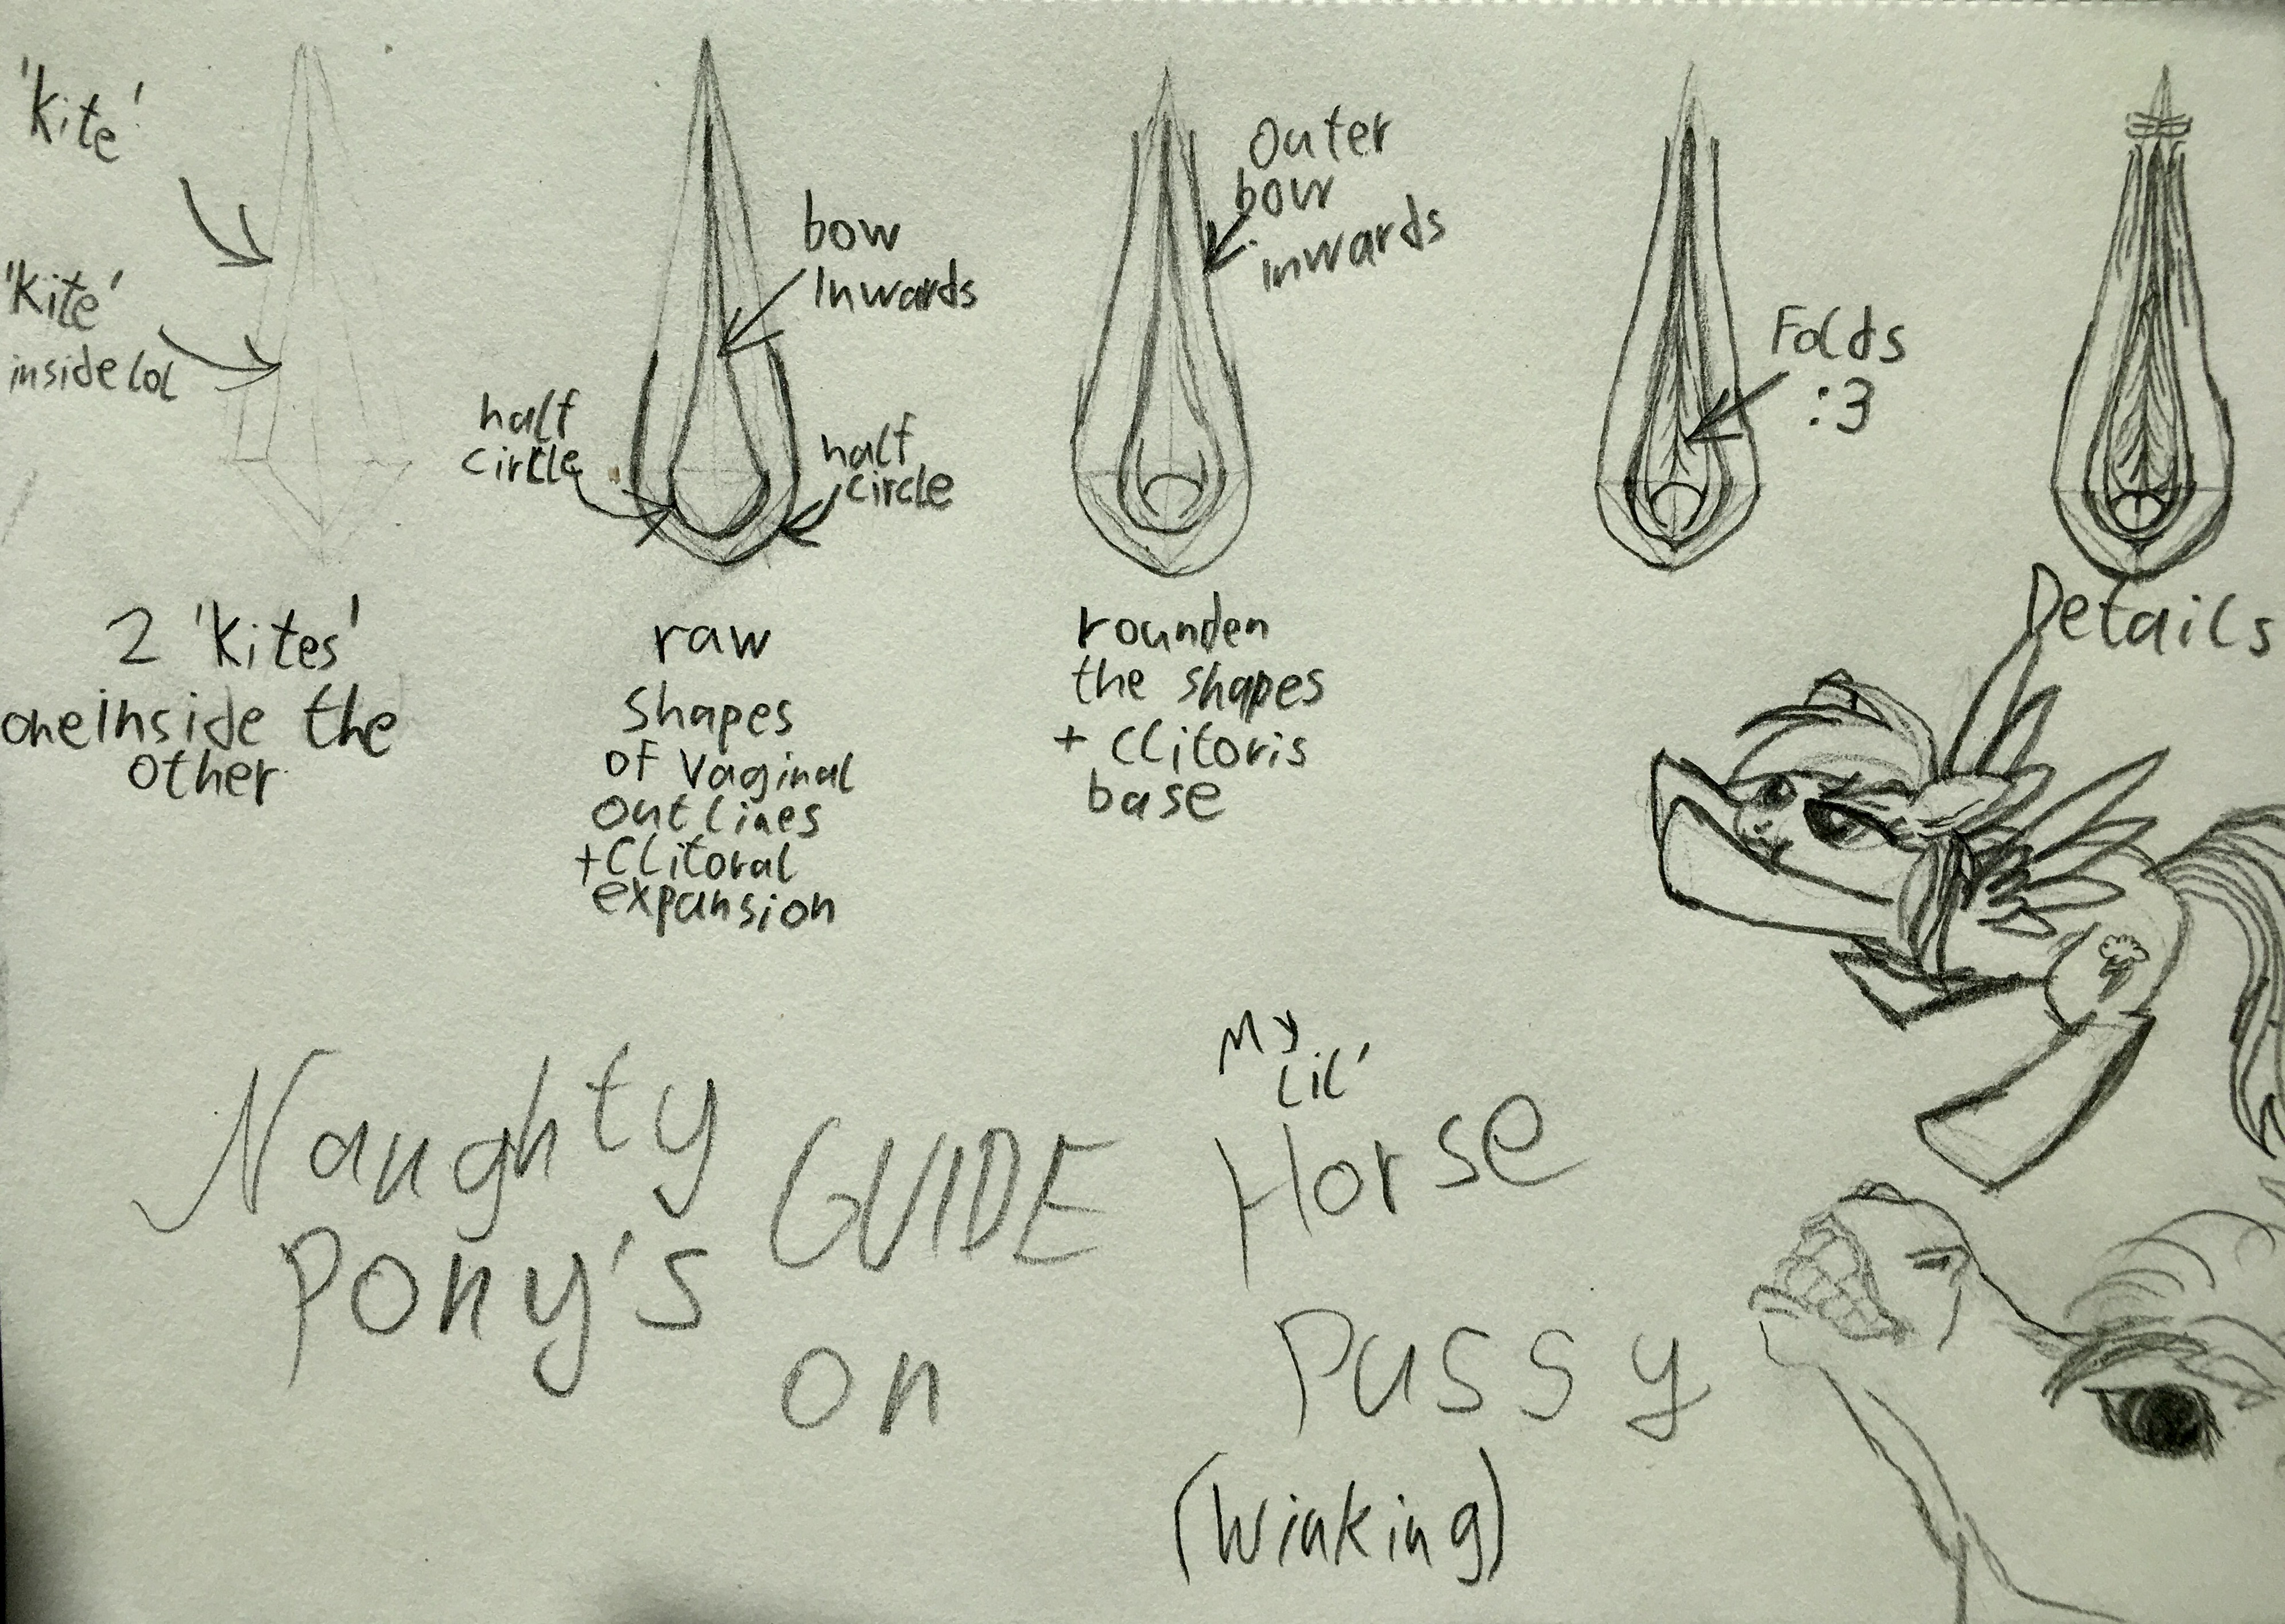 'Kite'
'Kite'
inside lol
2 'Kites'
one inside the
other
bow
inwards
half
circle
half
circle
raw
shapes
of vaginal
outlines
+ Clitoral
expansion
outer
bow
inwards
rounden
the shapes
+ Clitoris
base
Folds
:3
Details
Naughty
Pony's
GUIDE
on
My
Lil'
Horse
Pussy
(Winking)